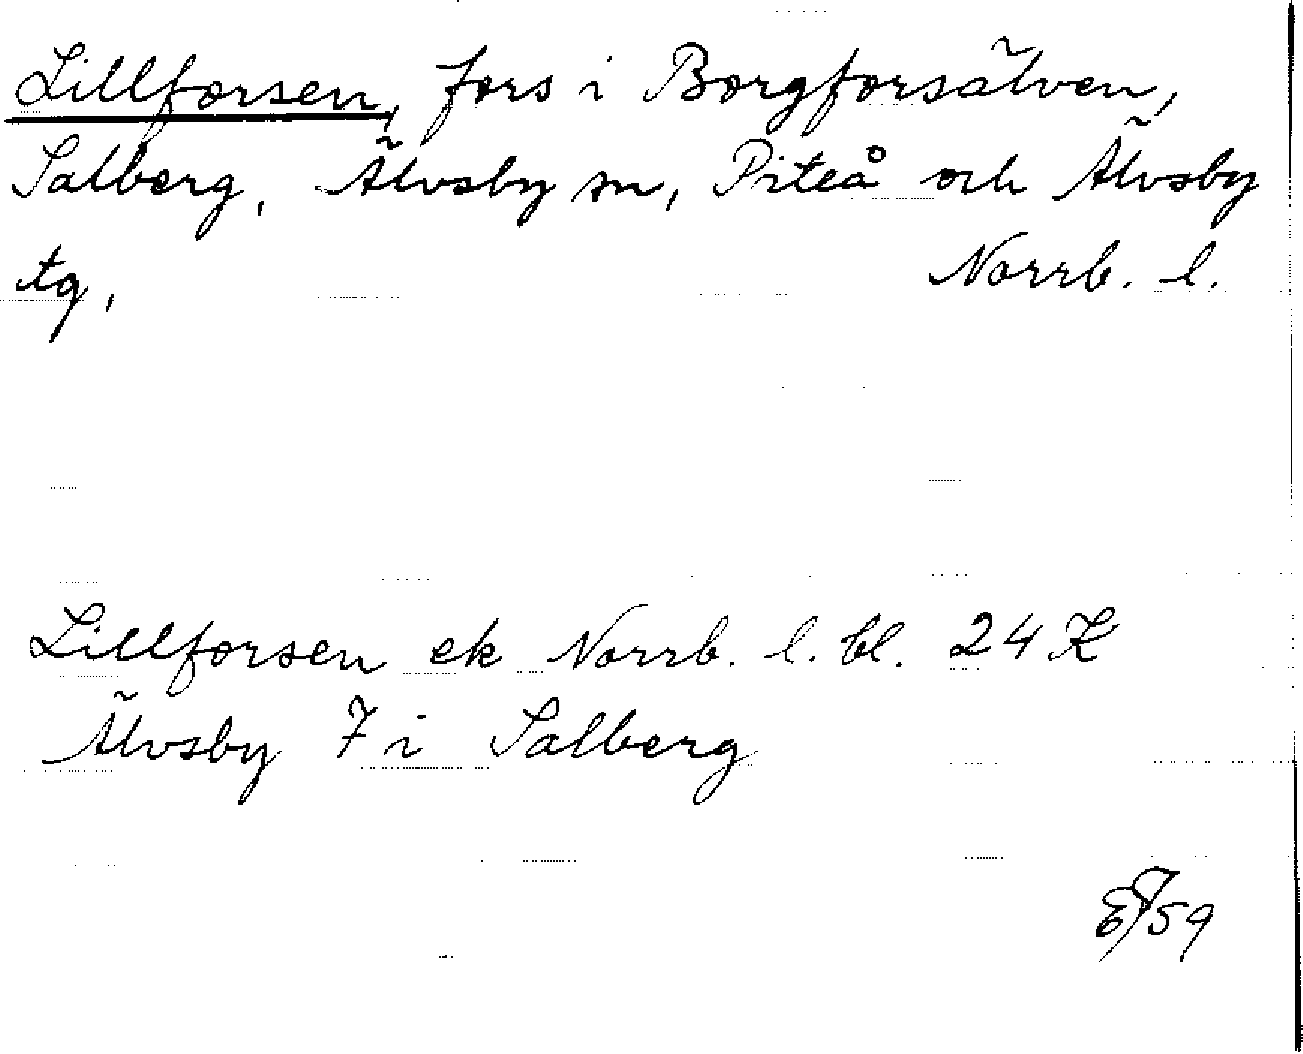 Lillforsen, fors i Borgforsälven,
Salberg, Älvsby sn, Piteå och Älvsby
tg, Norrb. l.
Lillforsen ek Norrb. l. bl. 24 K
Älvsby 7 i Salberg
59